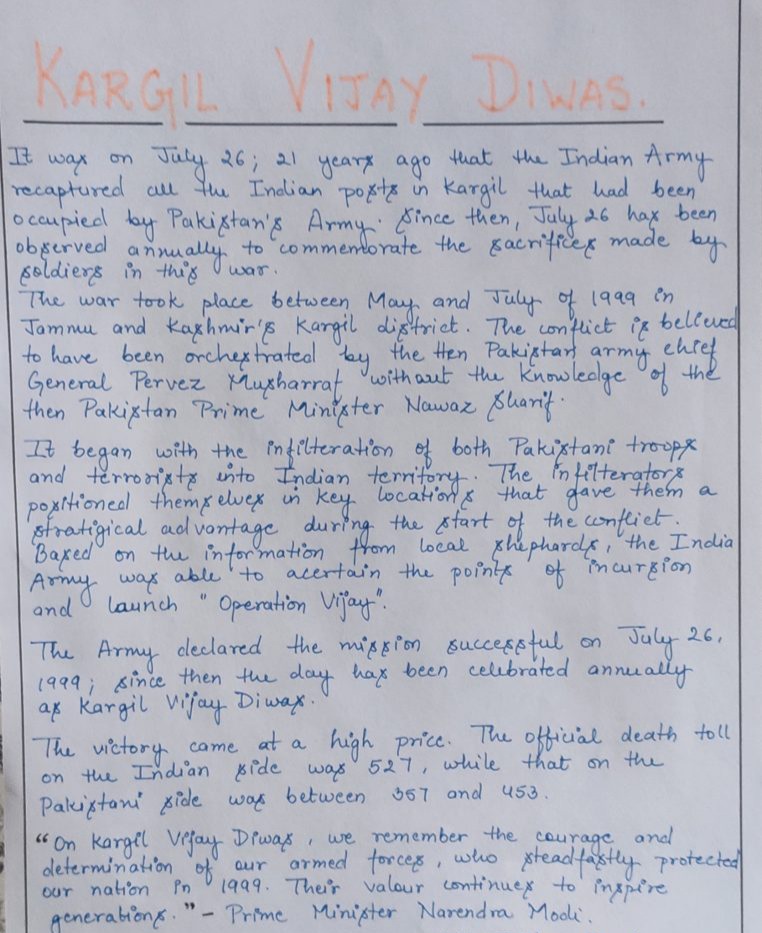 KARGIL VIJAY DIWAS.
It was on July 26; 21 years ago that the Indian Army
recaptured all the Indian posts in Kargil that had been
occupied by Pakistan's Army. Since then, July 26 has been
observed annually to commemorate the sacrifices made by
soldiers in this war.
The war took place between May and July of 1999 in
Jammu and Kashmir's Kargil district. The conflict is believed
to have been orchestrated by the then Pakistan army chief
General Pervez Musharraf without the knowledge of the
then Pakistan Prime Minister Nawaz Sharif.
It began with the infilteration of both Pakistani troops
and terrorists into Indian territory. The infilterators
positioned themselves in key locations that gave them a
stratigical advantage during the start of the conflict.
Based on the information from local shephards, the India
Army was able to acertain the points of incursion
and launch "Operation Vijay".
The Army declared the mission successful on July 26,
1999; since then the day has been celebrated annually
as Kargil Vijay Diwas.
The victory came at a high price. The official death toll
on the Indian side was 527, while that on the
Pakistani side was between 357 and 453.
"On Kargil Vijay Diwas, we remember the courage and
determination of our armed forces, who steadfastly protected
our nation in 1999. Their valour continues to inspire
generations." - Prime Minister Narendra Modi.